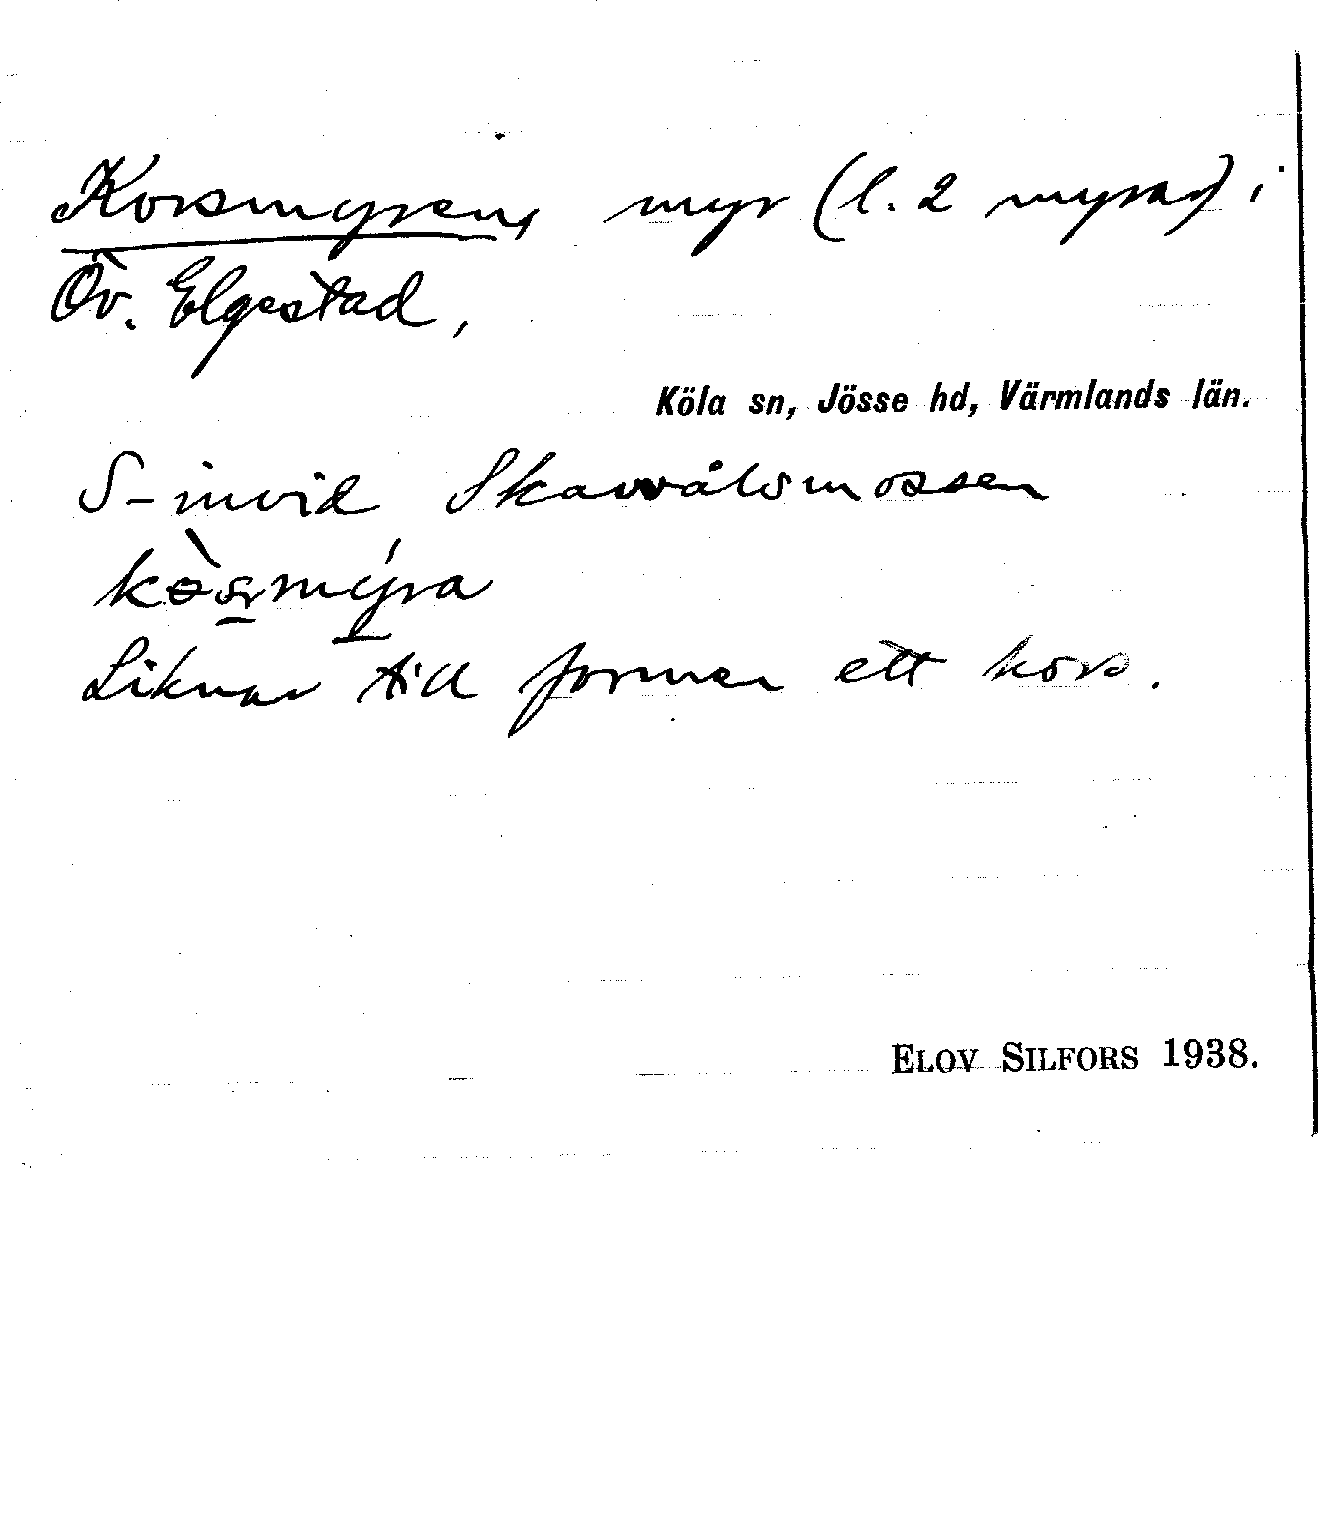 Korsmyren, myr (l. 2 myrar) i
Öv. Elgestad,
Köla sn, Jösse hd, Värmlands län.
S-invid Skavvålsmossen
Liknar till formen ett kors.
ELOV SILFORS 1938.